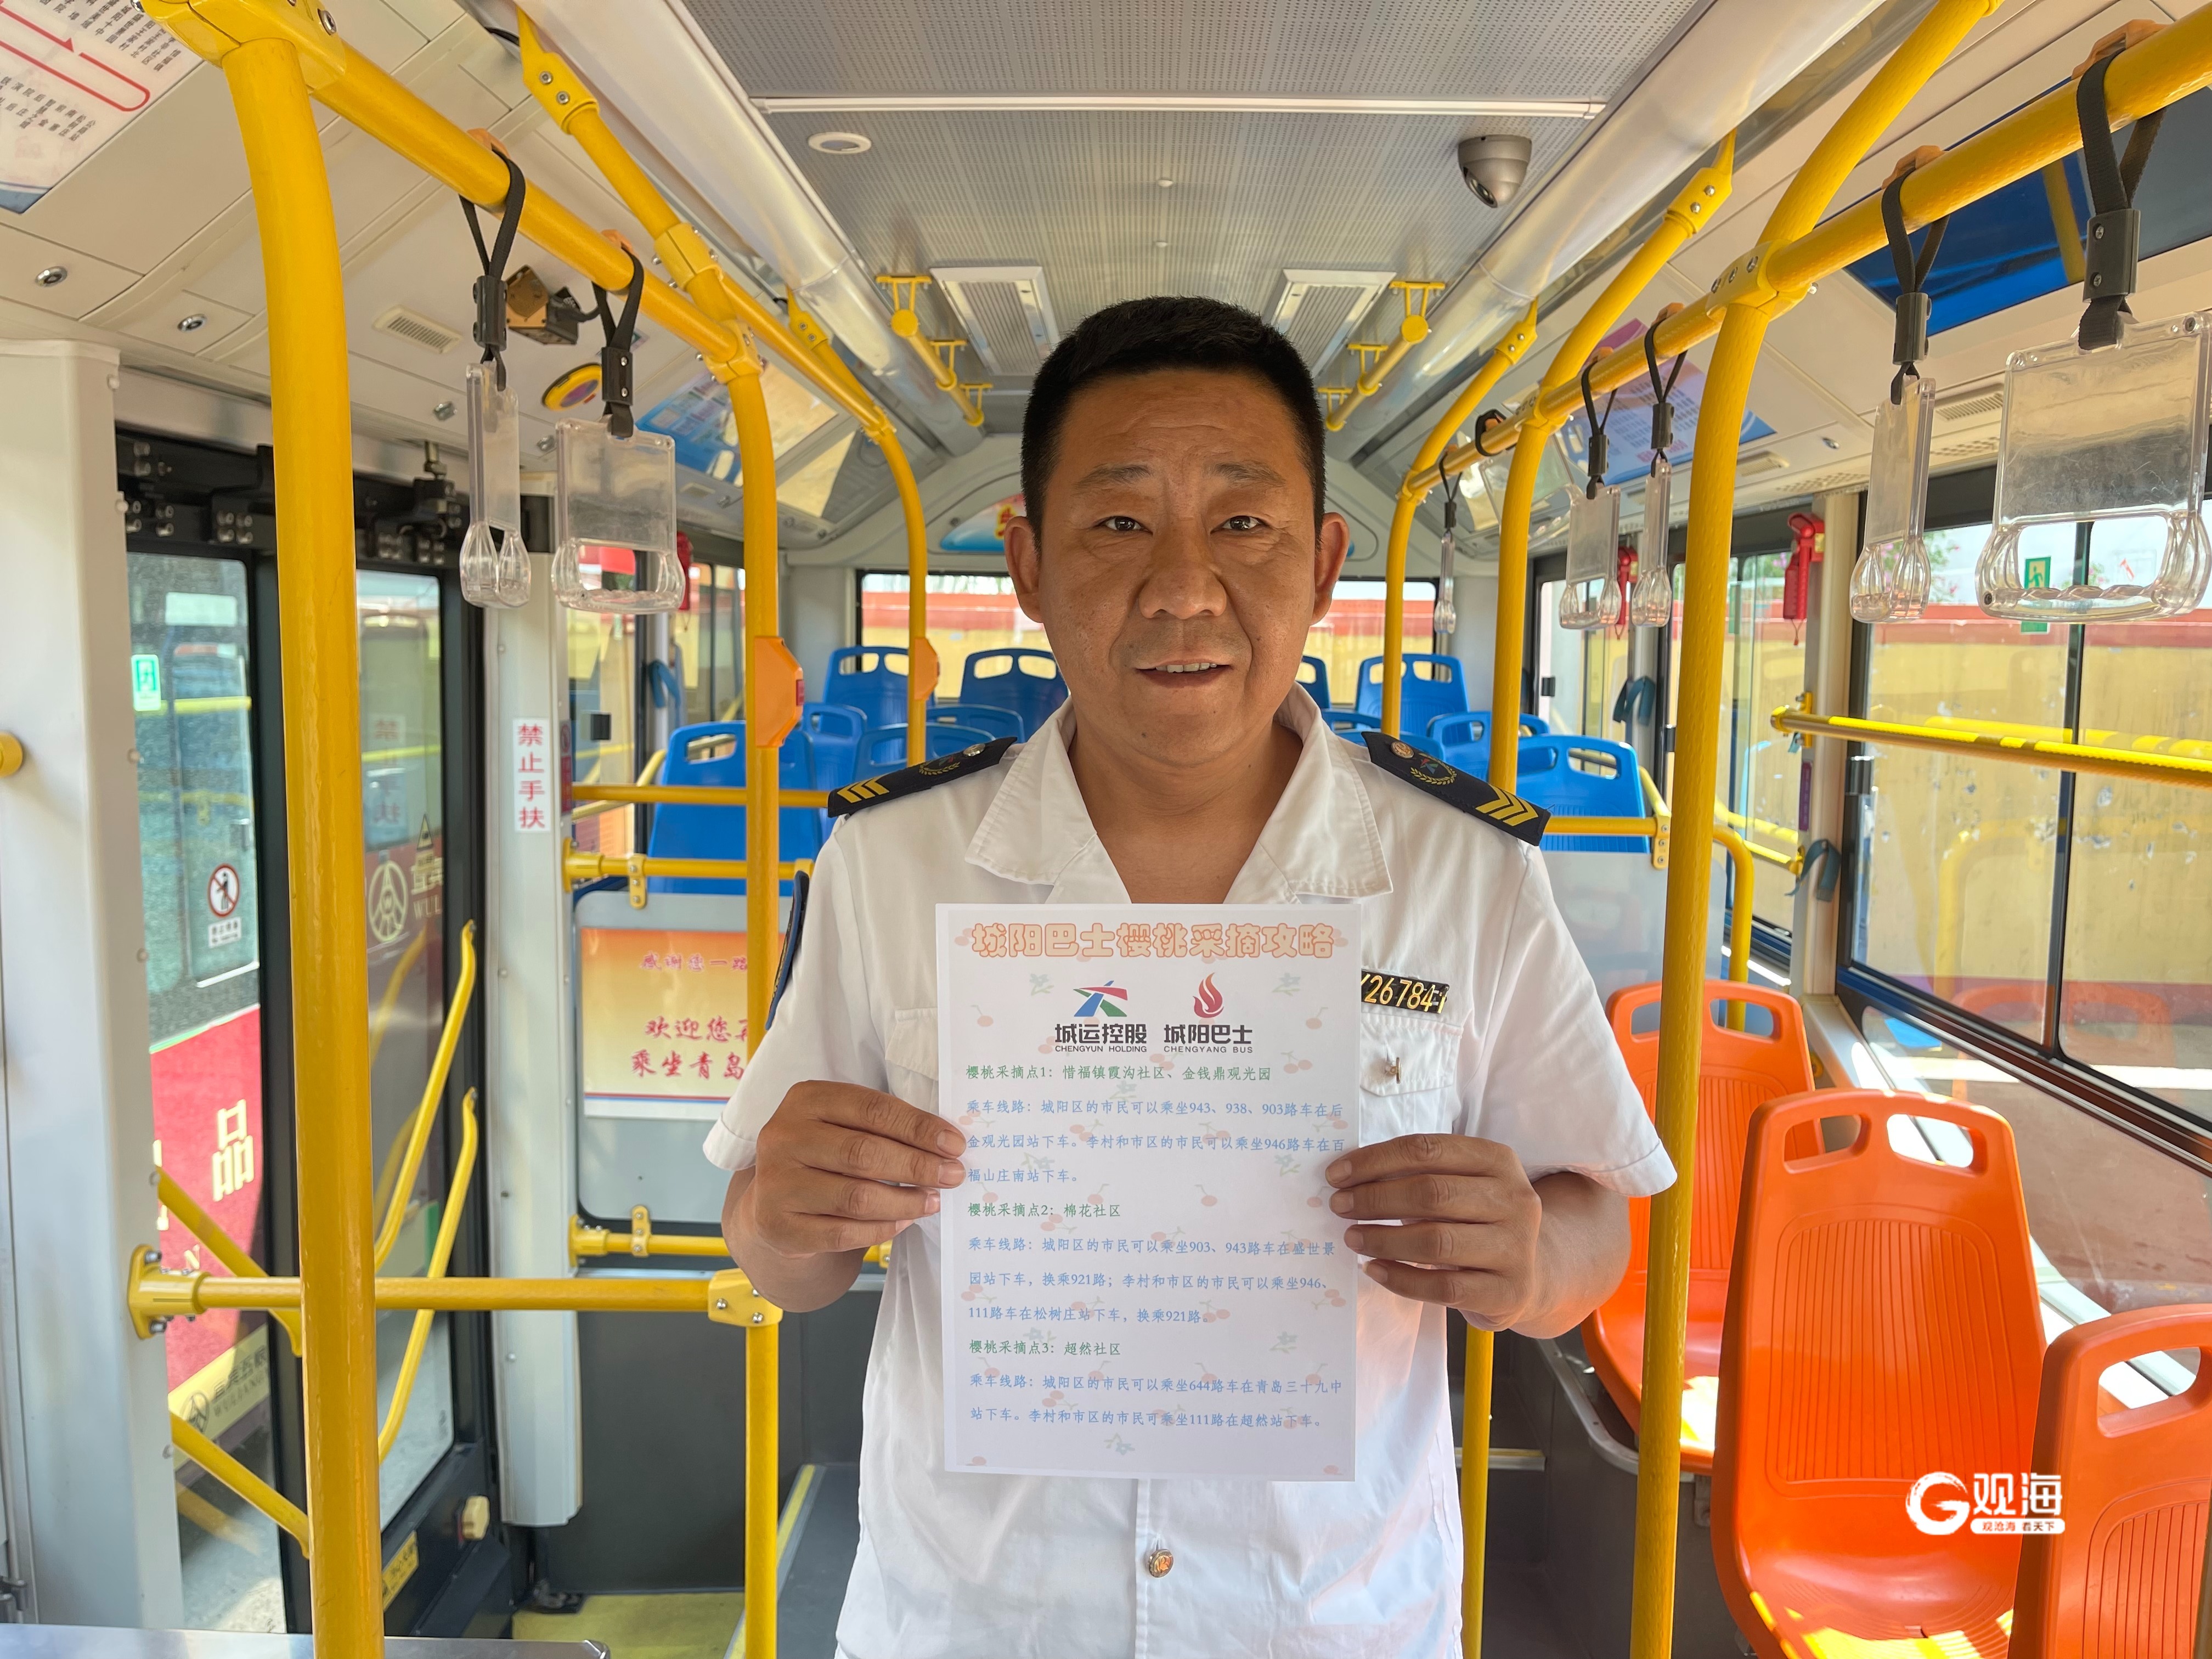 禁止手扶
感谢您一路
欢迎您再
乘坐青岛
品
城阳巴士樱桃采摘攻略
城运控股 城阳巴士
CHENGYUN HOLDING CHENGYANG BUS
樱桃采摘点1：惜福镇霞沟社区、金钱鼎观光园
乘车线路：城阳区的市民可以乘坐943、938、903路车在后
金观光园站下车。李村和市区的市民可以乘坐946路车在百
福山庄南站下车。
樱桃采摘点2：棉花社区
乘车线路：城阳区的市民可以乘坐903、943路车在盛世景
园站下车，换乘921路；李村和市区的市民可以乘坐946、
111路车在松树庄站下车，换乘921路。
樱桃采摘点3：超然社区
乘车线路：城阳区的市民可以乘坐644路车在青岛三十九中
站下车。李村和市区的市民可乘坐111路在超然站下车。
观海
观沧海 看天下